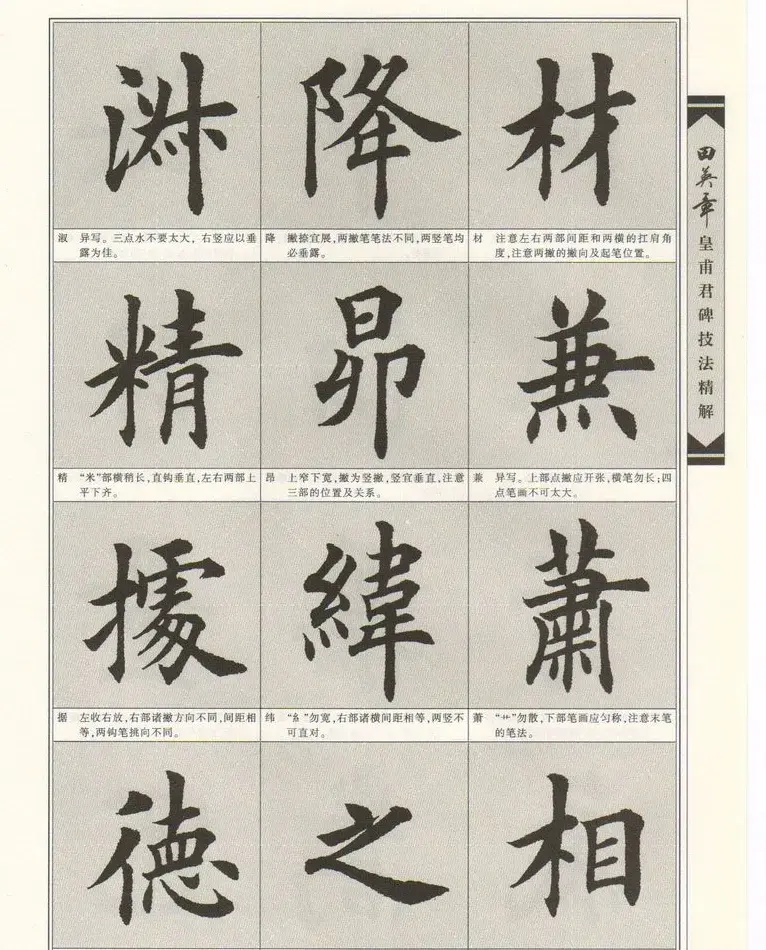 田英章
皇甫君碑技法精解
材
材 注意左右两部间距和两横的扛肩角
度,注意两撇的撇向及起笔位置。
兼
兼 异写。上部点撇应开张,横笔勿长;四
点笔画不可太大。
蕭
萧 “艹”勿散,下部笔画应匀称,注意末笔
的笔法。
相
降
降 撇捺宜展,两撇笔笔法不同,两竖笔均
必垂露。
昴
昂 上窄下宽,撇为竖撇,竖宜垂直,注意
三部的位置及关系。
緯
纬 “糹”勿宽,右部诸横间距相等,两竖不
可直对。
之
淑
淑 异写。三点水不要太大,右竖应以垂
露为佳。
精
精 “米”部横稍长,直钩垂直,左右两部上
平下齐。
據
据 左收右放,右部诸撇方向不同,间距相
等,两钩笔挑向不同。
德